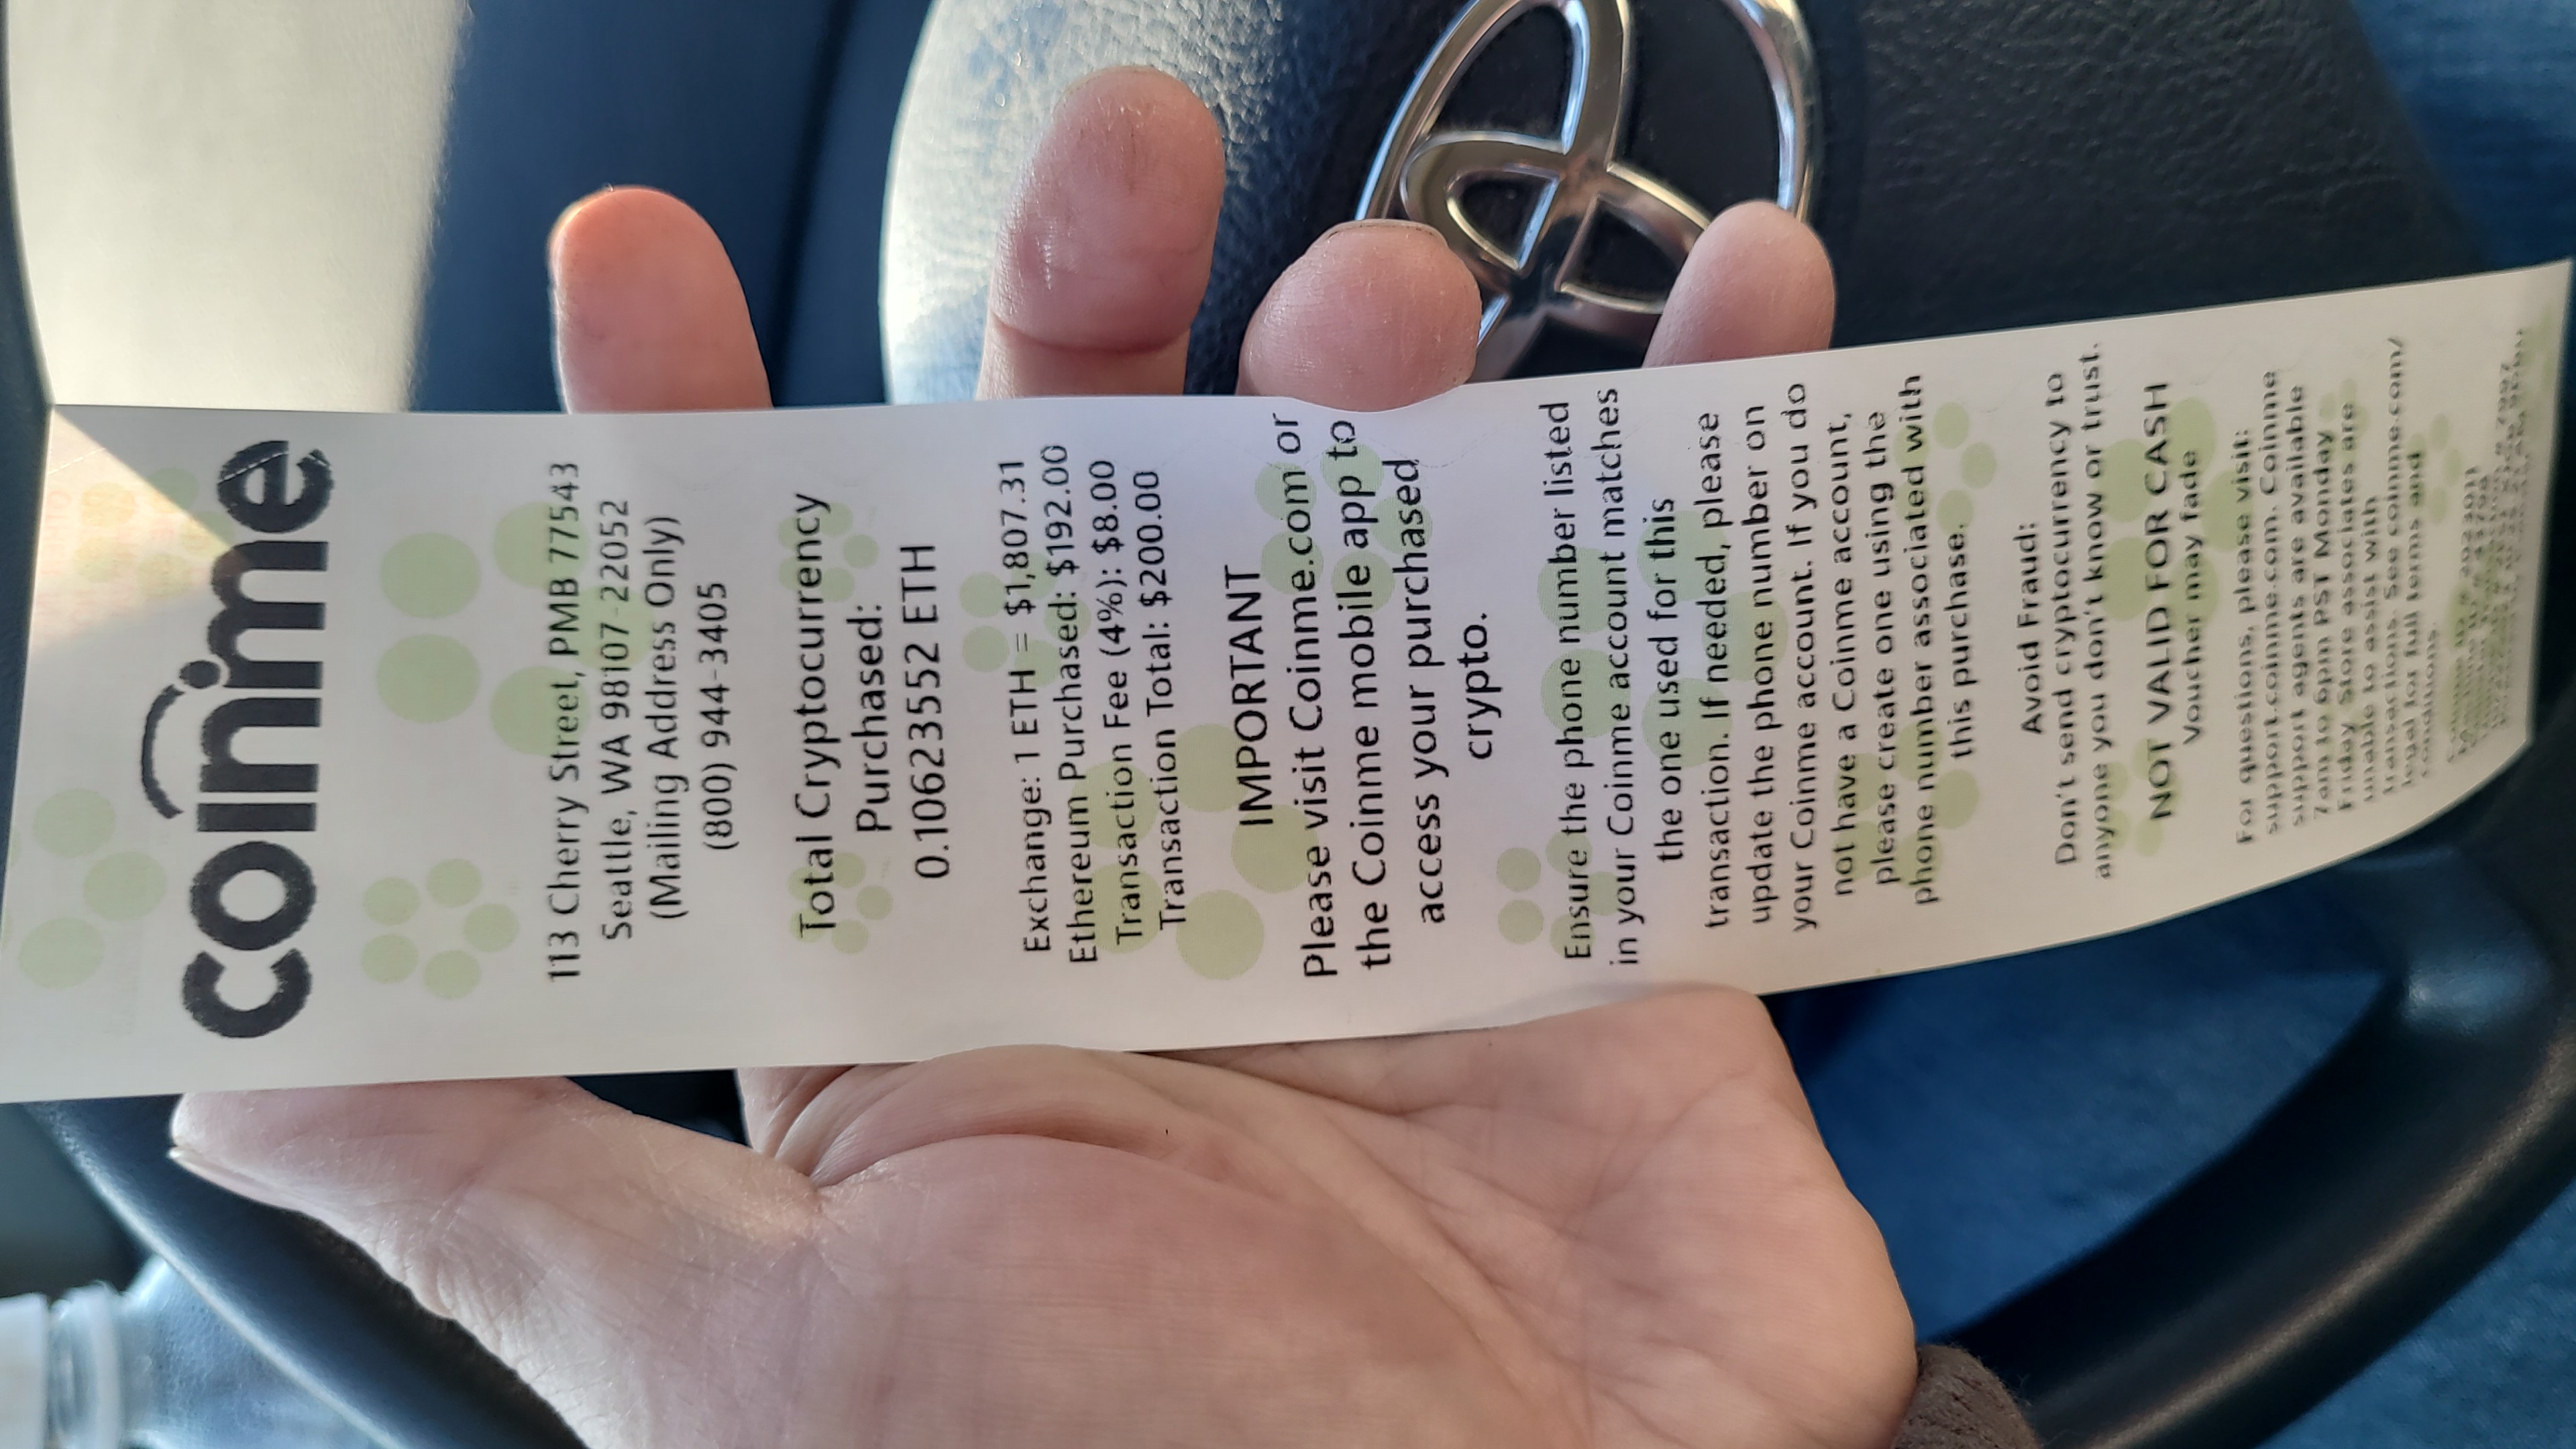 coinme
113 Cherry Street, PMB 77543
Seattle, WA 98107-22052
(Mailing Address Only)
(800) 944-3405
Total Cryptocurrency
Purchased:
0.10623552 ETH
Exchange: 1 ETH = $1,807.31
Ethereum Purchased: $192.00
Transaction Fee (4%): $8.00
Transaction Total: $200.00
IMPORTANT
Please visit Coinme.com or
the Coinme mobile app to
access your purchased
crypto.
Ensure the phone number listed
in your Coinme account matches
the one used for this
transaction. If needed, please
update the phone number on
your Coinme account. If you do
not have a Coinme account,
please create one using the
phone number associated with
this purchase.
Avoid Fraud:
Don't send cryptocurrency to
anyone you don't know or trust.
NOT VALID FOR CASH
Voucher may fade
For questions, please visit:
support.coinme.com. Coinme
support agents are available
7am to 6pm PST Monday
Friday Store associates are
unable to assist with
transactions. See coinme.com/
legal for full terms and
conditions.